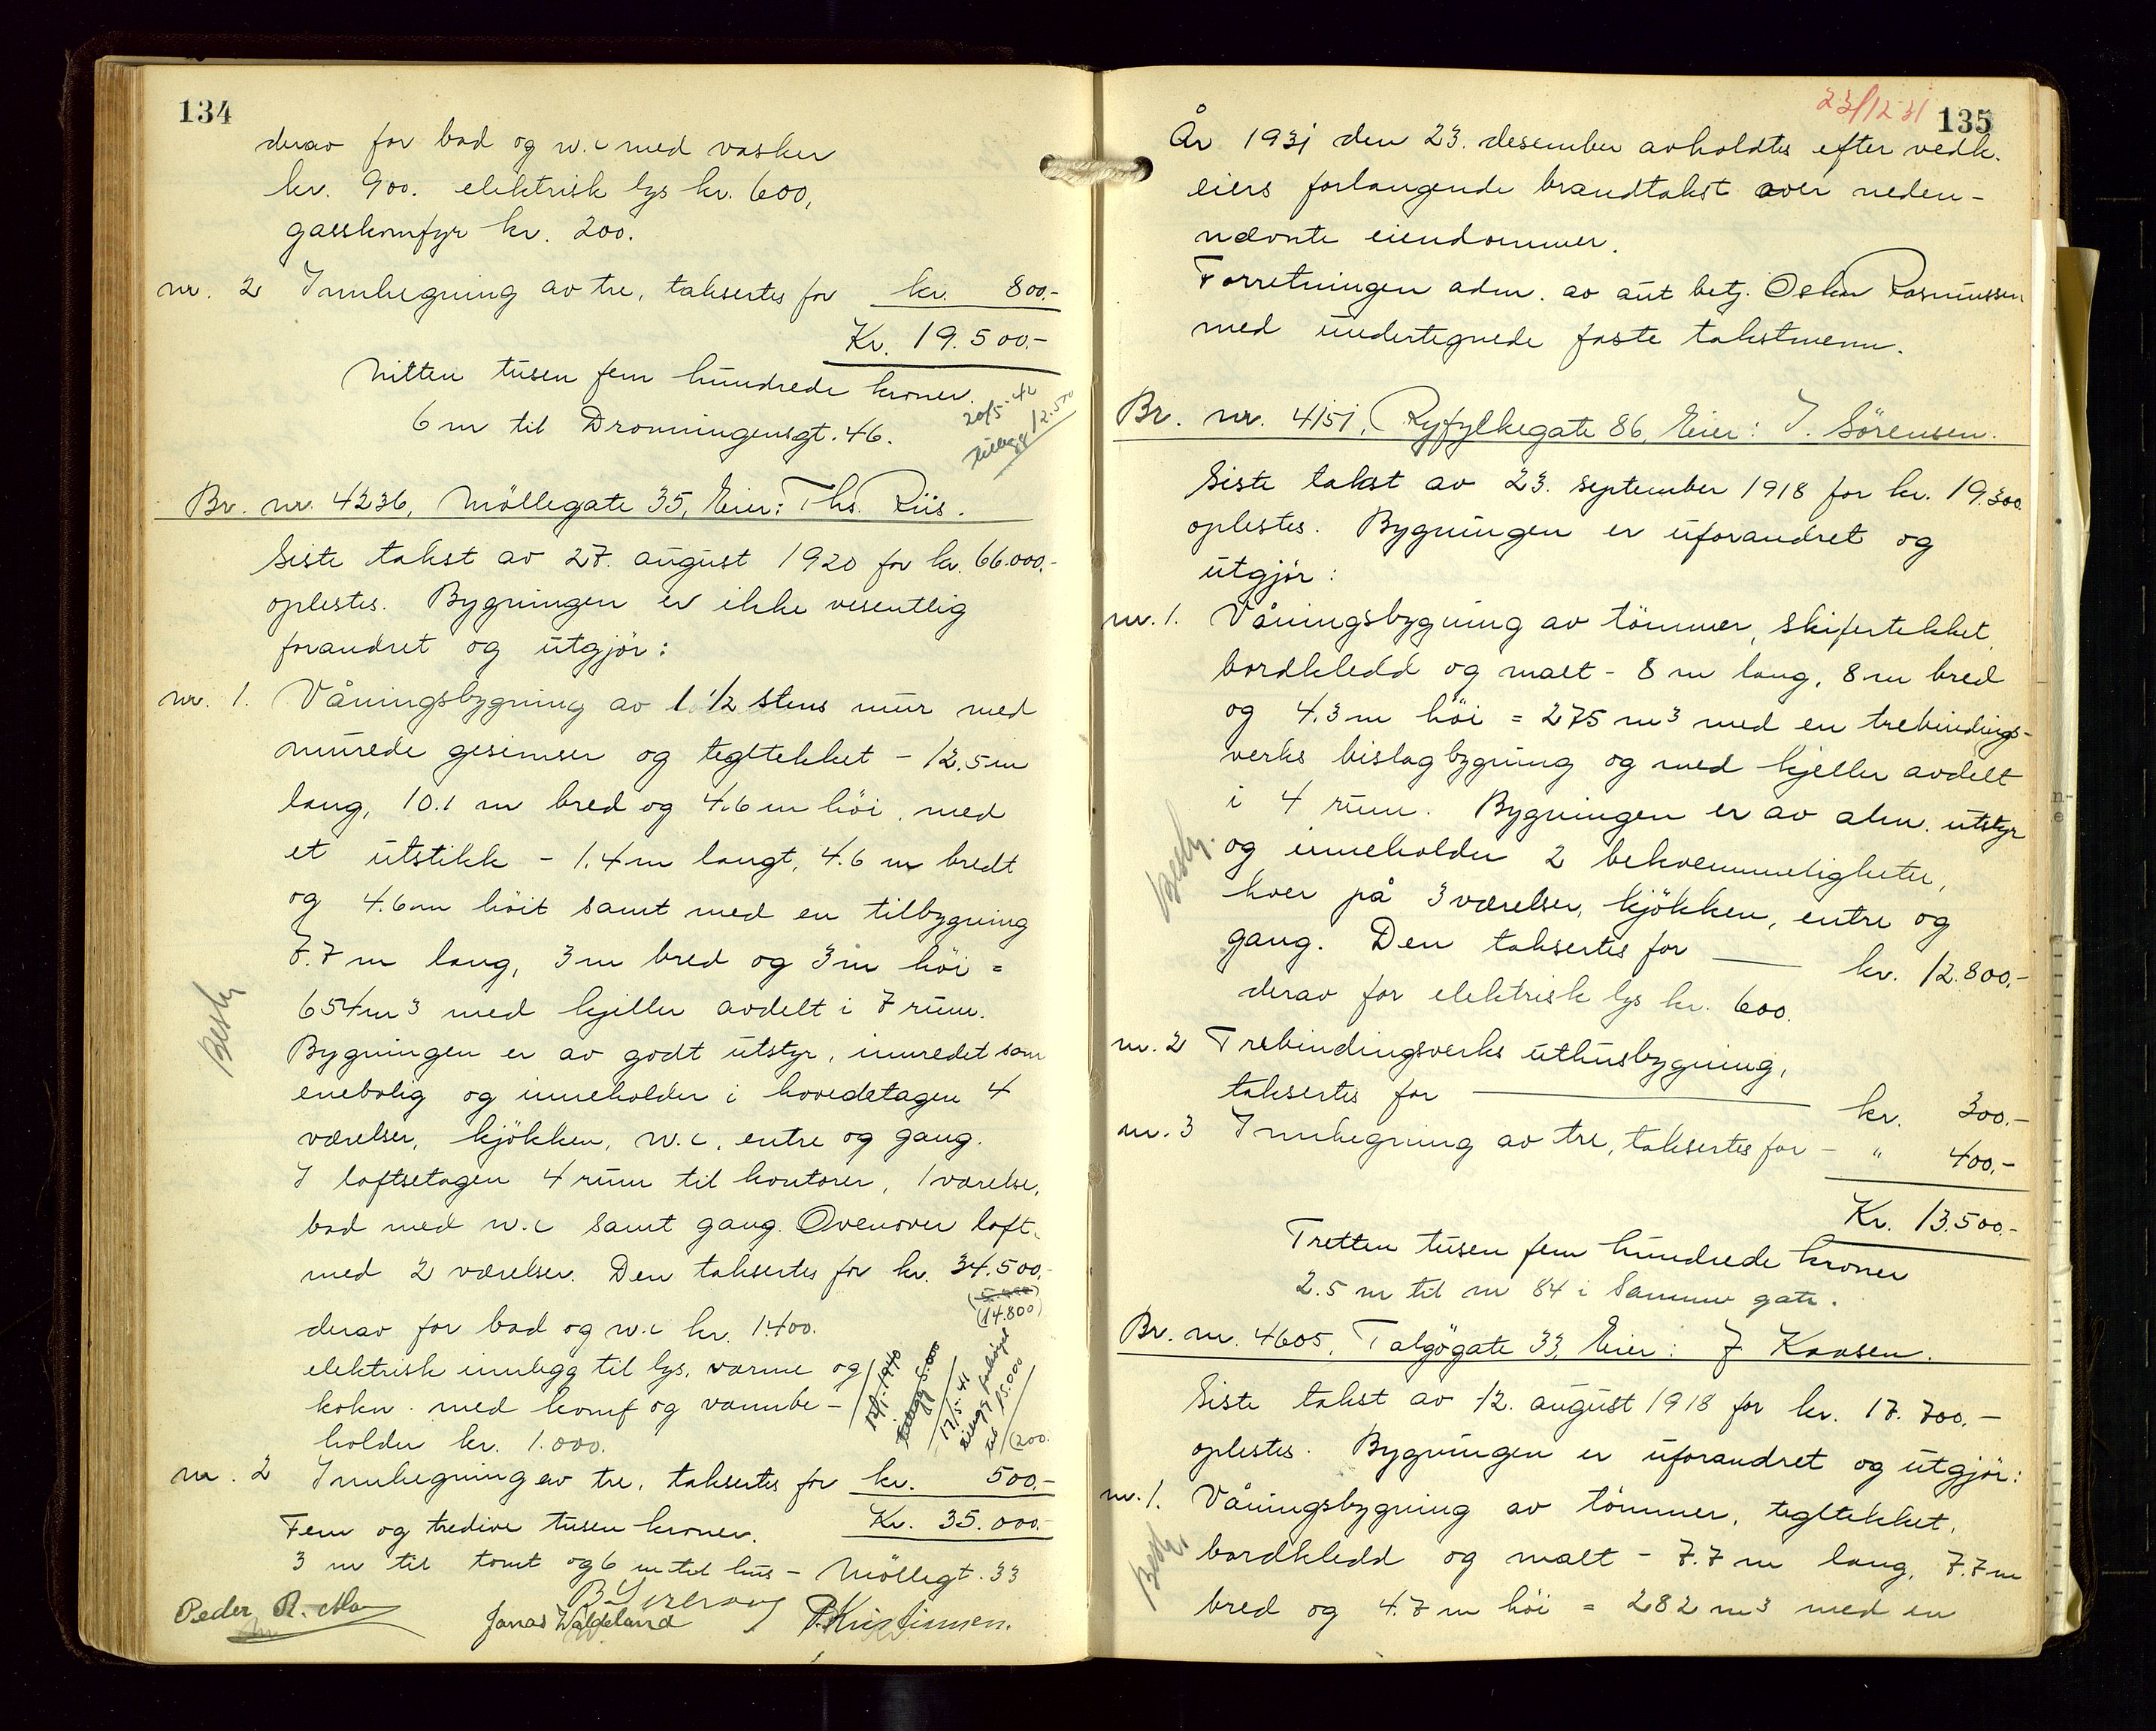 134
derav for bad og w.c med vasker
kr. 900. elektrisk lys kr. 600,
gasskomfyr kr. 200.
nr. 2 Innhegning av tre, taksertes for kr. 800.-
Kr. 19.500.-
Nitten tusen fem hundrede kroner.
6 m til Dronningensgt. 46.
20/5-42
tillegg 12.500
Br. nr. 4236, Möllegate 35, Eier: Ths. Riis.
Siste takst av 27. august 1920 for kr. 66.000.-
oplestes. Bygningen er ikke vesentlig
forandret og utgjör:
nr. 1. Våningsbygning av 1 1/2 stens mur med
murede gesimser og tegltekket - 12.5 m
lang, 10.1 m bred og 4.6 m höi, med
et utstikk - 1.4 m langt, 4.6 m bredt
og 4.6 m höit samt med en tilbygning
7.7 m lang, 3 m bred og 3 m höi =
654 m3 med kjeller avdelt i 7 rum.
Bygningen er av godt utstyr, innredet som
enebolig og inneholder i hovedetagen 4
værelser, kjökken, w.c, entre og gang.
I loftsetagen 4 rum til kontorer, 1 værelse,
bad med w.c samt gang. Ovenover loft
med 2 værelser. Den taksertes for kr. 34.500.-
(14.800)
derav for bad og w.c kr. 1400.
elektrisk innlegg til lys, varme og
kokn. med komf og vannbe-
holder kr. 1.000.
1940
tillegg 5.000
17/5-41
tillegg forhöiet
til 15.000
(200.
nr. 2 Innhegning av tre, taksertes for kr. 500.-
Fem og tredive tusen kroner. Kr. 35.000.-
3 m til tomt og 6 m til hus - Möllegt. 33
Peder R.
Jonas Waldeland
P. Kristiansen.
Besly
135
23/12 31
År 1931 den 23. desember avholdtes efter vedk.
eiers forlangende brandtakst over neden-
nævnte eiendommer.
Forretningen adm. av aut betj. Oskar Rasmussen
med undertegnede faste takstmenn.
Br. nr. 4151, Ryfylkegate 86, Eier: I. Sörensen.
Siste takst av 23. september 1918 for kr. 19.300.
oplestes. Bygningen er uforandret og
utgjör:
nr. 1. Våningsbygning av tömmer, skifertekket,
bordkledd og malt - 8 m lang, 8 m bred
og 4.3 m höi = 275 m3 med en trebindings-
verks bislagbygning og med kjeller avdelt
i 4 rum. Bygningen er av alm. utstyr
og inneholder 2 bekvemmeligheter,
hver på 3 værelser, kjökken, entre og
gang. Den taksertes for kr. 12.800.-
derav for elektrisk lys kr. 600.
nr. 2 Trebindingsverks uthusbygning,
taksertes for kr. 300.-
nr. 3 Innhegning av tre, taksertes for - " 400.-
Kr. 13.500.-
Tretten tusen fem hundrede kroner
2.5 m til nr 84 i samme gate.
Br. nr. 4605, Talgögate 33, Eier: J. Kaasen.
Siste takst av 12. august 1918 for kr. 17.700.-
oplestes. Bygningen er uforandret og utgjör:
nr. 1. Våningsbygning av tömmer, tegltekket,
bordkledd og malt - 7.7 m lang, 7.7 m
bred og 4.7 m höi = 282 m3 med en